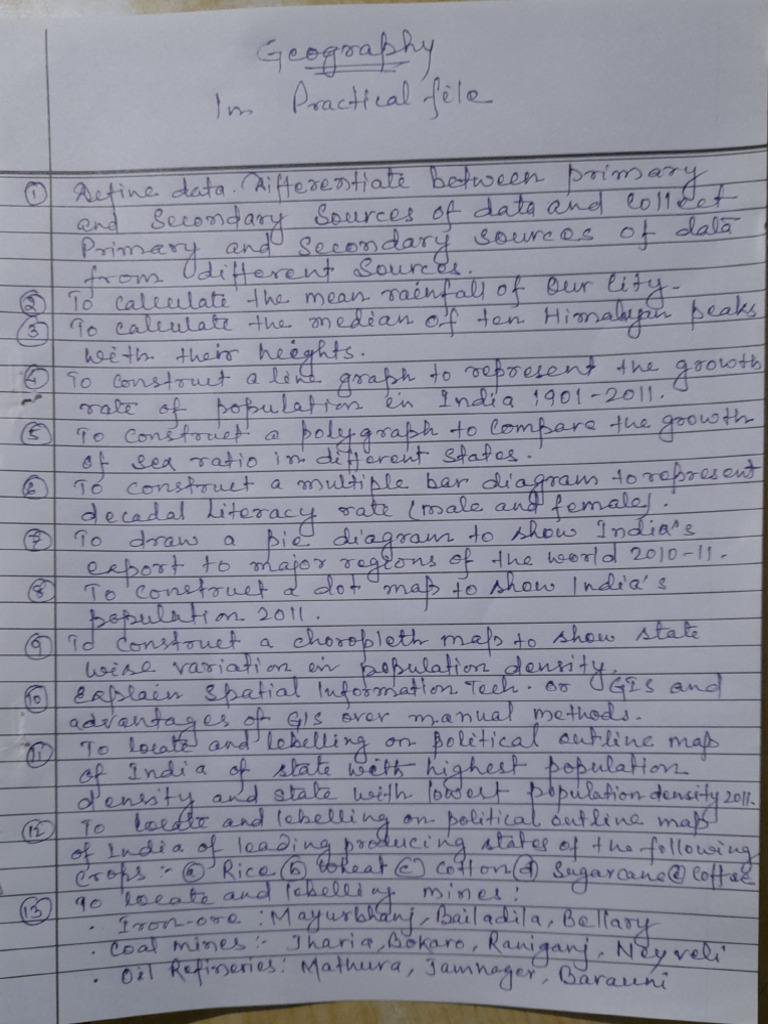 Geography
In Practical file
① Define data. Differentiate between primary
and Secondary Sources of data and Collect
Primary and Secondary sources of data
from different Sources.
② To calculate the mean rainfall of Our City.
③ To calculate the median of ten Himalayan peaks
with their heights.
④ To construct a line graph to represent the growth
rate of population in India 1901-2011.
⑤ To construct a polygraph to compare the growth
of sex ratio in different states.
⑥ To construct a multiple bar diagram to represent
decadal literacy rate (male and female).
⑦ To draw a pie diagram to show India's
export to major regions of the world 2010-11.
⑧ To construct a dot map to show India's
population 2011.
⑨ To construct a choropleth map to show state
wise variation in population density.
⑩ Explain Spatial Information Tech. or GIS and
advantages of GIS over manual methods.
⑪ To locate and labelling on political outline map
of India of state with highest population
density and state with lowest population density 2011.
⑫ To locate and labelling on political outline map
of India of leading producing states of the following
crops :- ⓐ Rice ⓑ wheat ⓒ Cotton ⓓ Sugarcane ⓔ Coffee
⑬ To locate and labelling mines:
· Iron-ore : Mayurbhanj, Bailadila, Bellary
· Coal mines :- Jharia, Bokaro, Raniganj, Neyveli
· Oil Refineries: Mathura, Jamnager, Barauni